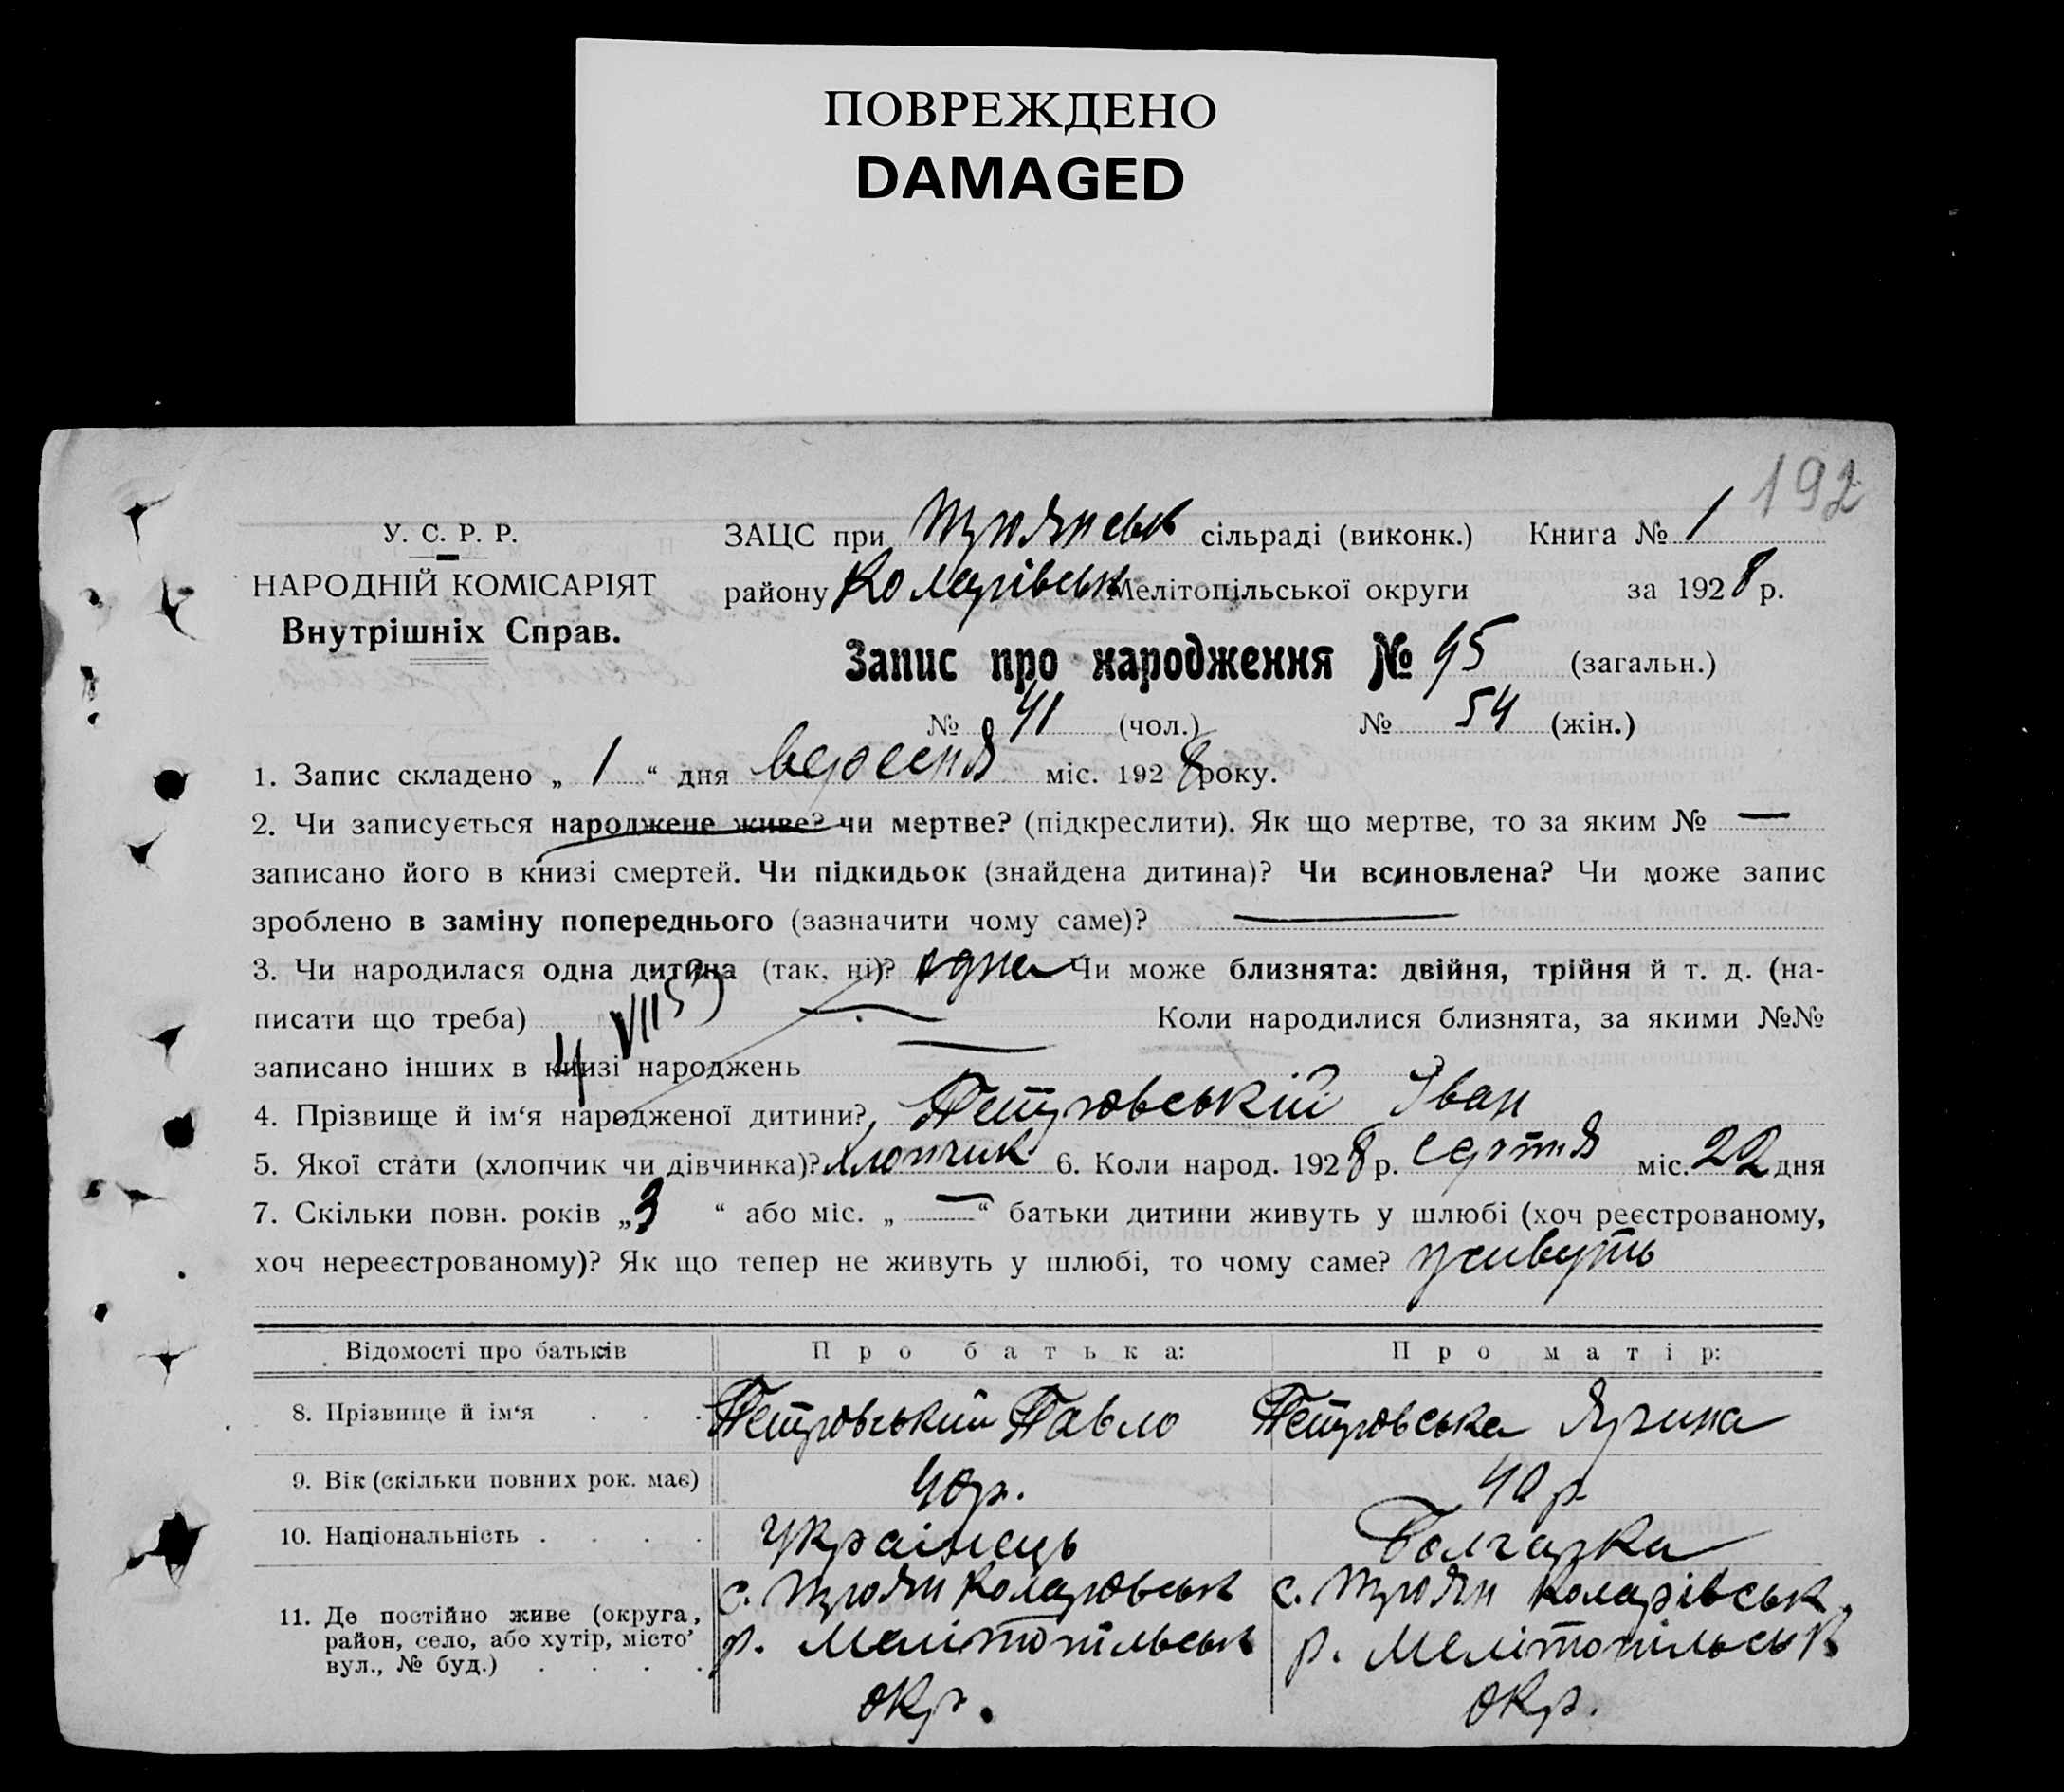 ПОВРЕЖДЕНО
DAMAGED
192
У. С. Р. Р.
НАРОДНІЙ КОМІСАРІЯТ
Внутрішніх Справ.
ЗАЦС при Троянськ сільраді (виконк.) Книга № 1
району Коларівськ Мелітопільської округи за 1928 р.
Запис про народження № 95 (загальн.)
№ 41 (чол.) № 54 (жін.)
1. Запис складено „ 1 “ дня вересня міс. 1928 року.
2. Чи записується народжене живе? чи мертве? (підкреслити). Як що мертве, то за яким № —
записано його в книзі смертей. Чи підкидьок (знайдена дитина)? Чи всиновлена? Чи може запис
зроблено в заміну попереднього (зазначити чому саме)? —
3. Чи народилася одна дитина (так, ні)? одна Чи може близнята: двійня, трійня й т. д. (на-
писати що треба) Коли народилися близнята, за якими №№
записано інших в книзі народжень
4. Прізвище й ім‘я народженої дитини? Петровській Іван
5. Якої стати (хлопчик чи дівчинка)? Хлопчик 6. Коли народ. 1928 р. серпня міс. 22 дня
7. Скільки повн. років „ 3 “ або міс. „ — “ батьки дитини живуть у шлюбі (хоч реєстрованому,
хоч нереєстрованому)? Як що тепер не живуть у шлюбі, то чому саме? живуть
Відомості про батьків Про батька: Про матір:
8. Прізвище й ім‘я . . . Петровський Павло Петровська Ярина
9. Вік (скільки повних рок. має) 40 р. 40 р.
10. Національність . . . . Українець Болгарка
11. Де постійно живе (округа, район, село, або хутір, місто, вул., № буд.) . . . .
с. Троян Коларовськ с. Троян Коларівськ.
р. Мелітопільськ р. Мелітопільськ
окр. окр.